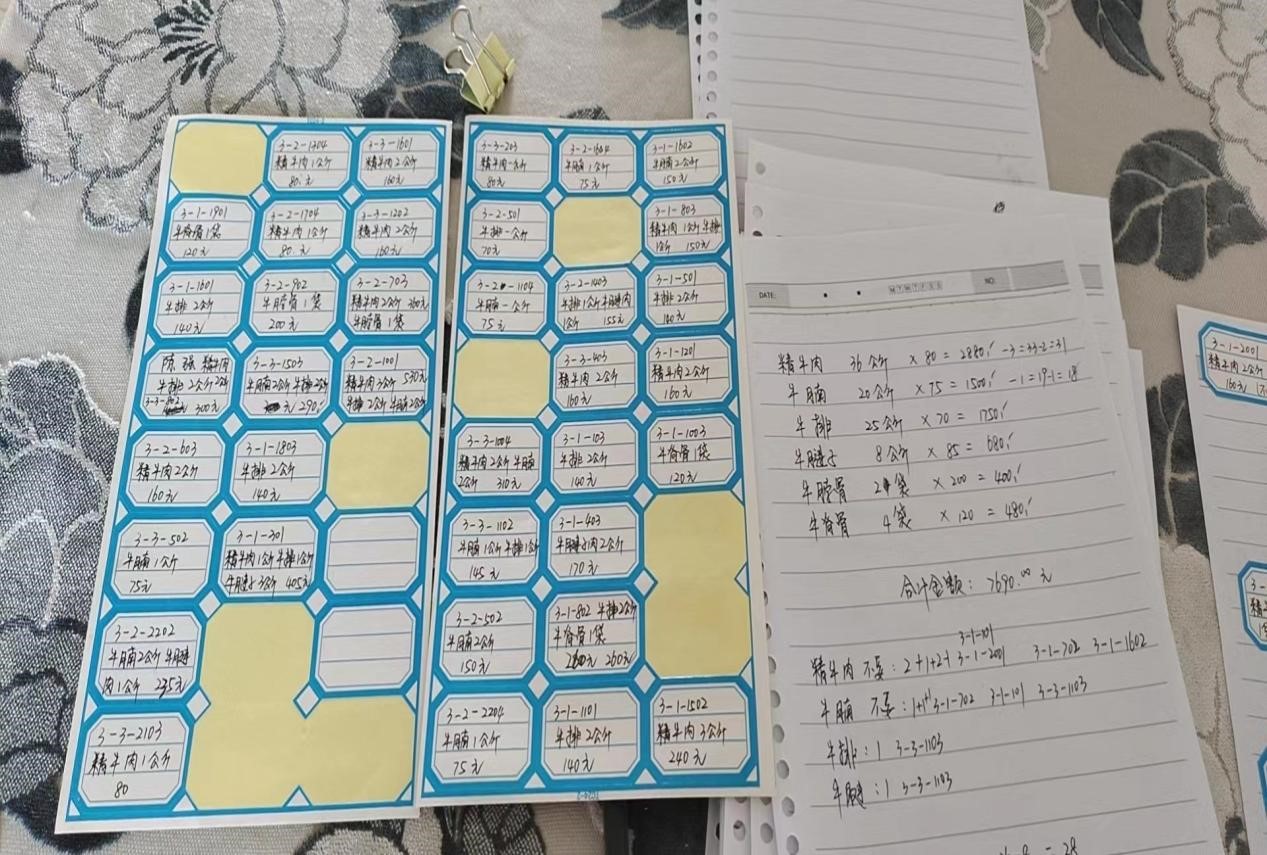 3-2-1304
精牛肉1公斤
80.元
3-3-1601
精牛肉2公斤
160元
3-1-1901
牛脊骨1袋
120元
3-2-1704
精牛肉1公斤
80.元
3-3-1202
精牛肉2公斤
160元
3-1-1601
牛排2公斤
140元
3-2-902
牛膛骨1袋
200元
3-2-703
精牛肉2公斤
牛膛骨1袋
陈强 精牛肉
牛排2公斤
300元
3-3-1503
牛腩2公斤 牛排2公斤
290
3-2-1001
精牛肉3公斤 530元
牛排2公斤 牛腩2公斤
3-2-603
精牛肉2公斤
160元
3-1-1803
牛排2公斤
140元
3-3-502
牛腩1公斤
75元
3-1-301
精牛肉1公斤 牛排1公斤
牛腱子3公斤 405元
3-2-2202
牛腩2公斤 牛腱
肉1公斤 235元
3-3-2103
精牛肉1公斤
80
3-3-203
精牛肉一公斤
80元
3-2-1604
牛腩1公斤
75元
3-1-1602
牛腩2公斤
150元
3-2-501
牛排一公斤
70元
3-1-803
精牛肉1公斤 牛排
1公斤 150元
3-2-1104
牛腩一公斤
75元
3-2-1403
牛排1公斤 牛腱肉
1公斤 155元
3-1-501
牛排2公斤
140元
3-3-403
精牛肉2公斤
160元
3-1-1201
精牛肉2公斤
160元
3-3-1004
精牛肉2公斤 牛腩
2公斤 310元
3-1-103
牛排2公斤
140元
3-1-1003
牛脊骨1袋
120元
3-3-1102
牛腩1公斤 牛排1公斤
145元
3-1-403
牛腱子肉2公斤
170元
3-2-502
牛腩2公斤
150元
3-1-802 牛排2公斤
牛脊骨1袋
260元
3-2-2204
牛腩1公斤
75元
3-1-1101
牛排2公斤
140元
3-1-1502
精牛肉3公斤
240元
DATE:
M T W T F S S
NO.
精牛肉 36公斤 ×80=2880 -3=33-2=31
牛腩 20公斤 ×75=1500 -1=19-1=18
牛排 25公斤 ×70=1750
牛腱子 8公斤 ×85=680
牛膛骨 2袋 ×200=400
牛脊骨 4袋 ×120=480
合计金额:7690.00元
3-1-101
精牛肉不要:2+1+2+1 3-1-2001 3-1-702 3-1-1602
牛腩不要:1+1+1 3-1-702 3-1-101 3-3-1103
牛排:1 3-3-1103
牛腱:1 3-3-1103
=28
3-1-2001
精牛肉2公斤
160元